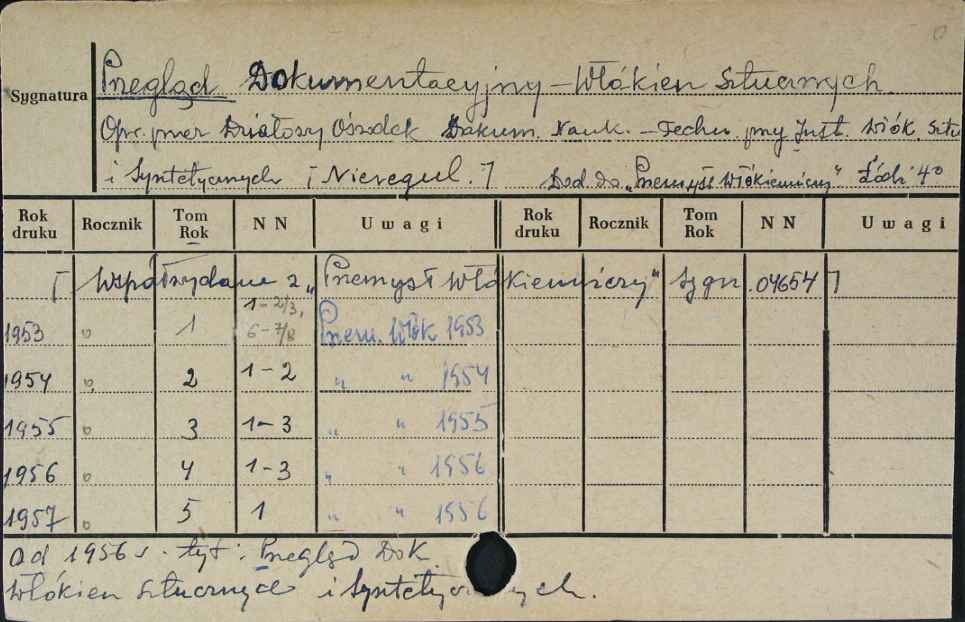 Sygnatura
Przegląd Dokumentacyjny – Włókien Sztucznych.
Opr. przez Działowy Ośrodek Dokum. Nauk. – Techn. przy Inst. Włók. Sztu
i Syntetycznych [Nieregul.] Dod. do „Przemysł Włókienniczy" Łódź 4°
Rok druku Rocznik Tom Rok NN Uwagi Rok druku Rocznik Tom Rok NN Uwagi
[Współwydane z „Przemysł Włókienniczy" sygn. 04654]
1953 1 1–2/3, 6–7/8 Przem. Włók 1953
1954 2 1–2 " " 1954
1955 3 1–3 " " 1955
1956 4 1–3 " " 1956
1957 5 1 " " 1956
Od 1956 r. tyt: Przegląd Dok.
Włókien Sztucznych i Syntetycznych.